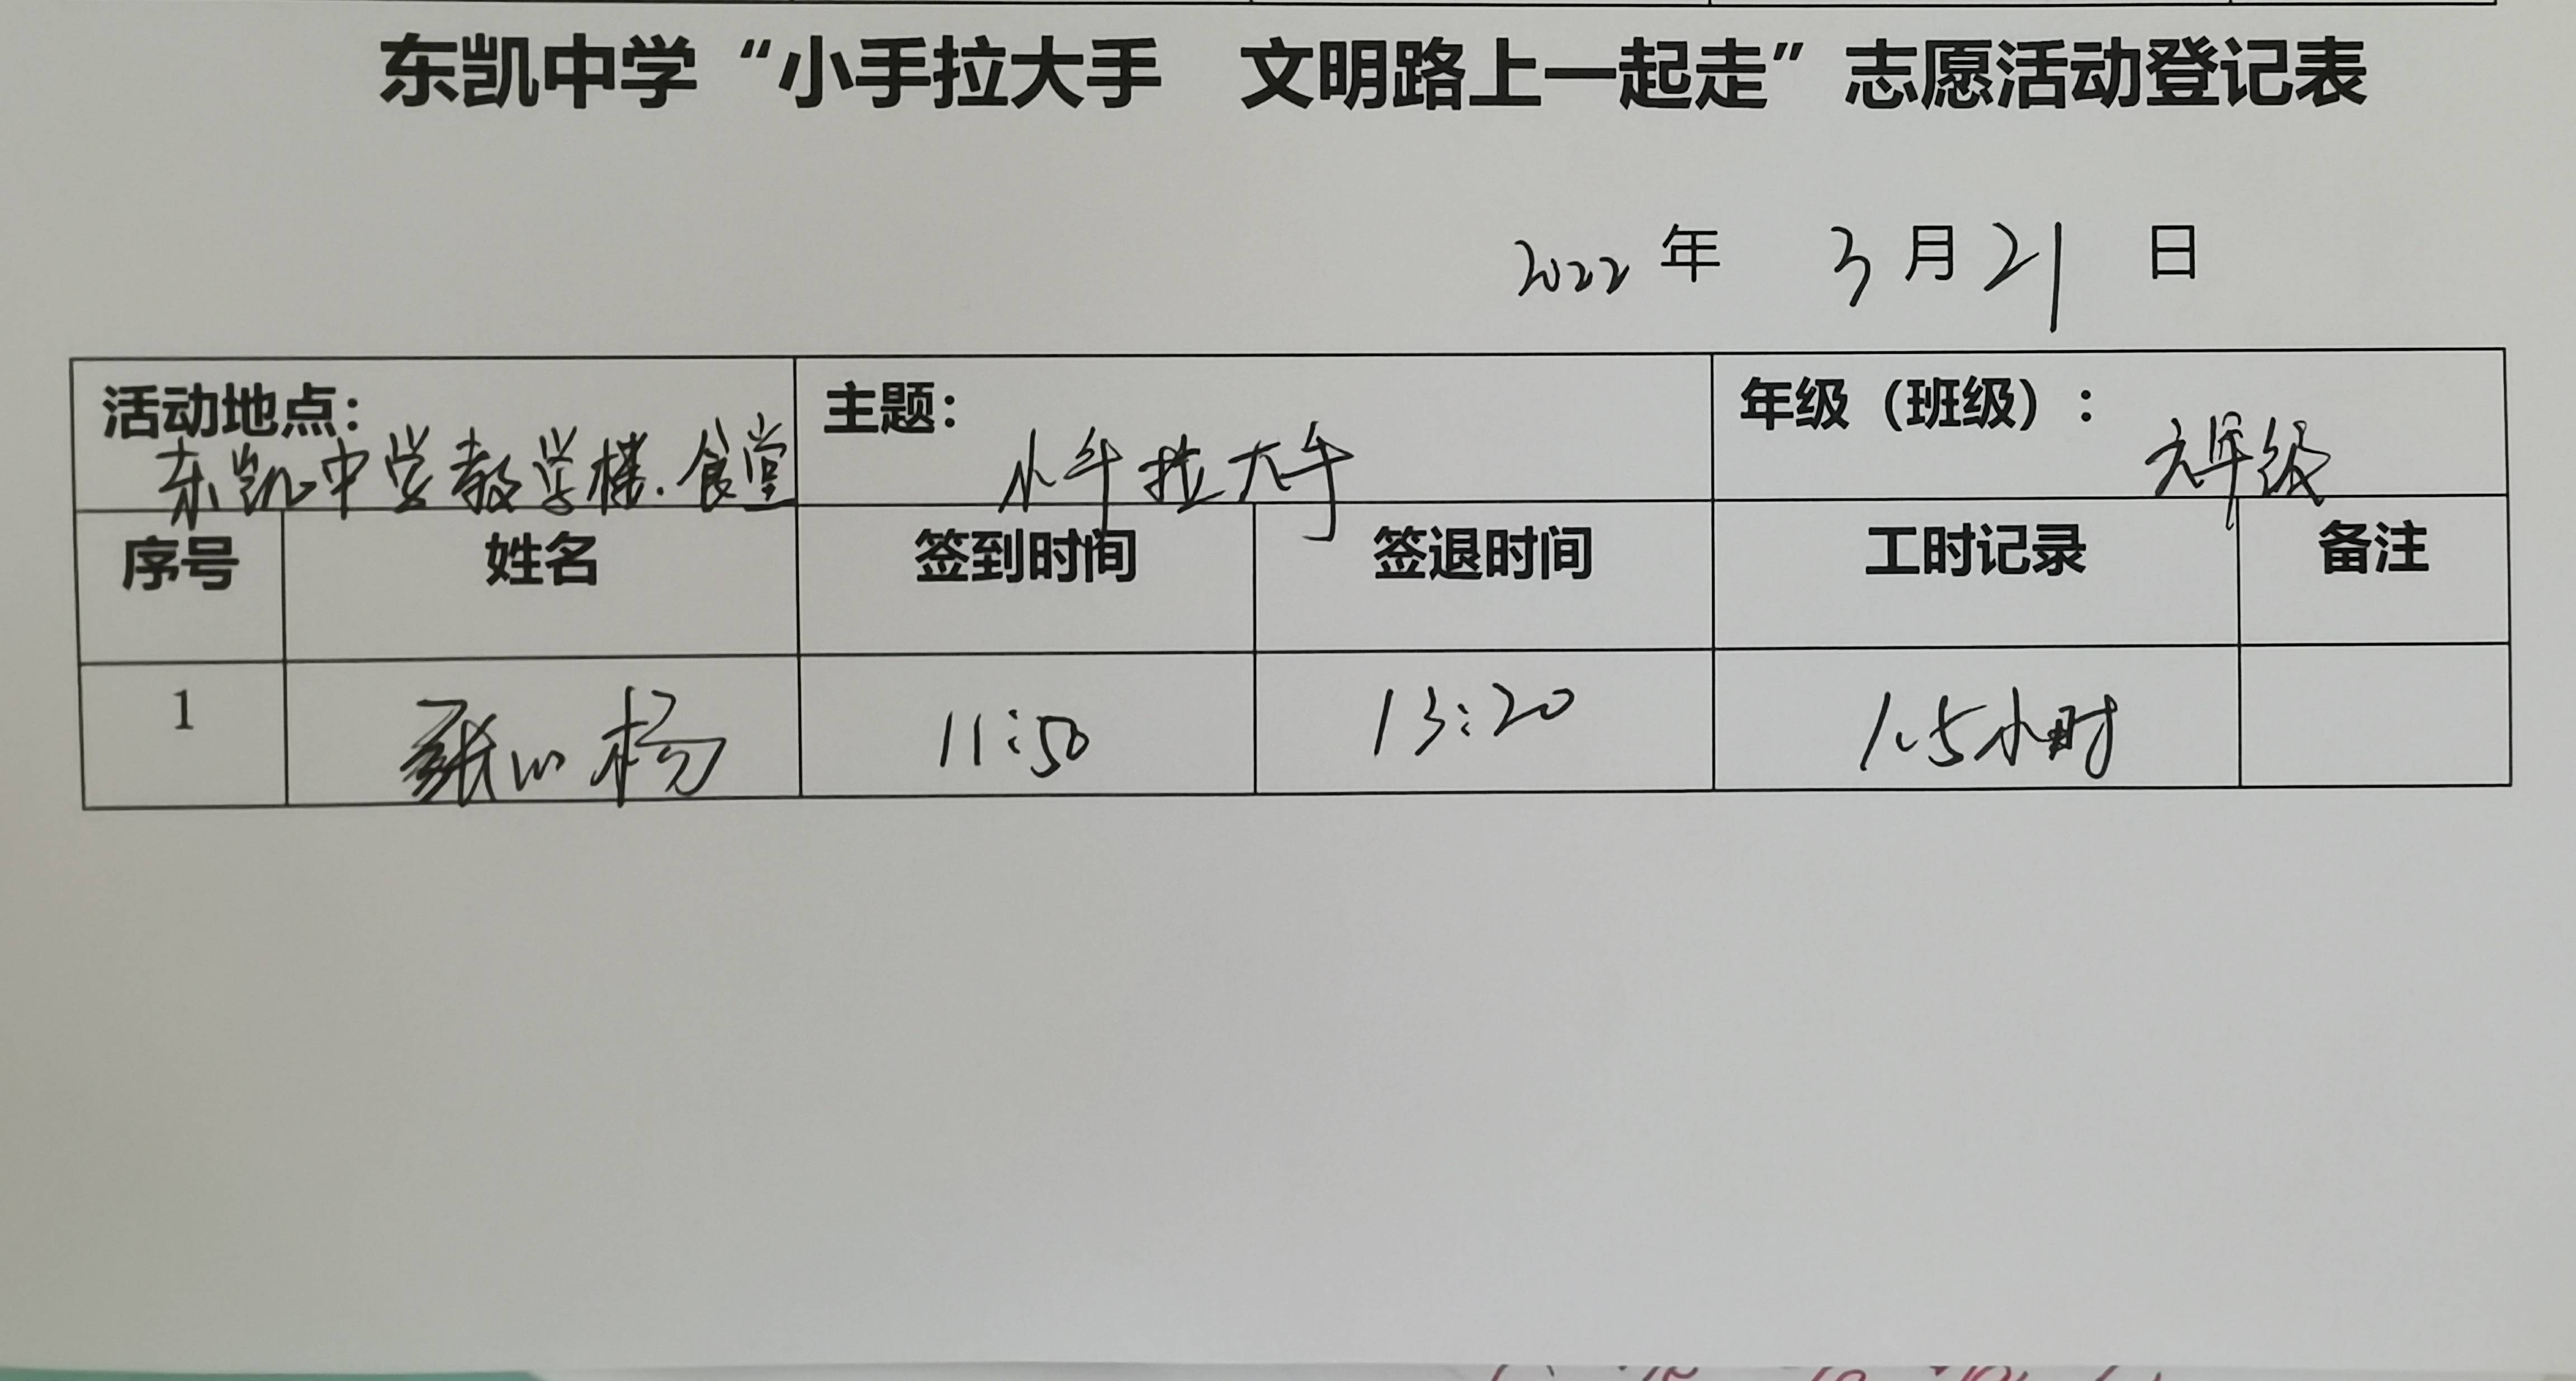 东凯中学“小手拉大手 文明路上一起走”志愿活动登记表
2022年 3月21日
活动地点: 东凯中学教学楼.食堂 主题: 小手拉大手 年级（班级）: 六年级
序号 姓名 签到时间 签退时间 工时记录 备注
1 张 杨 11:50 13:20 1.5小时